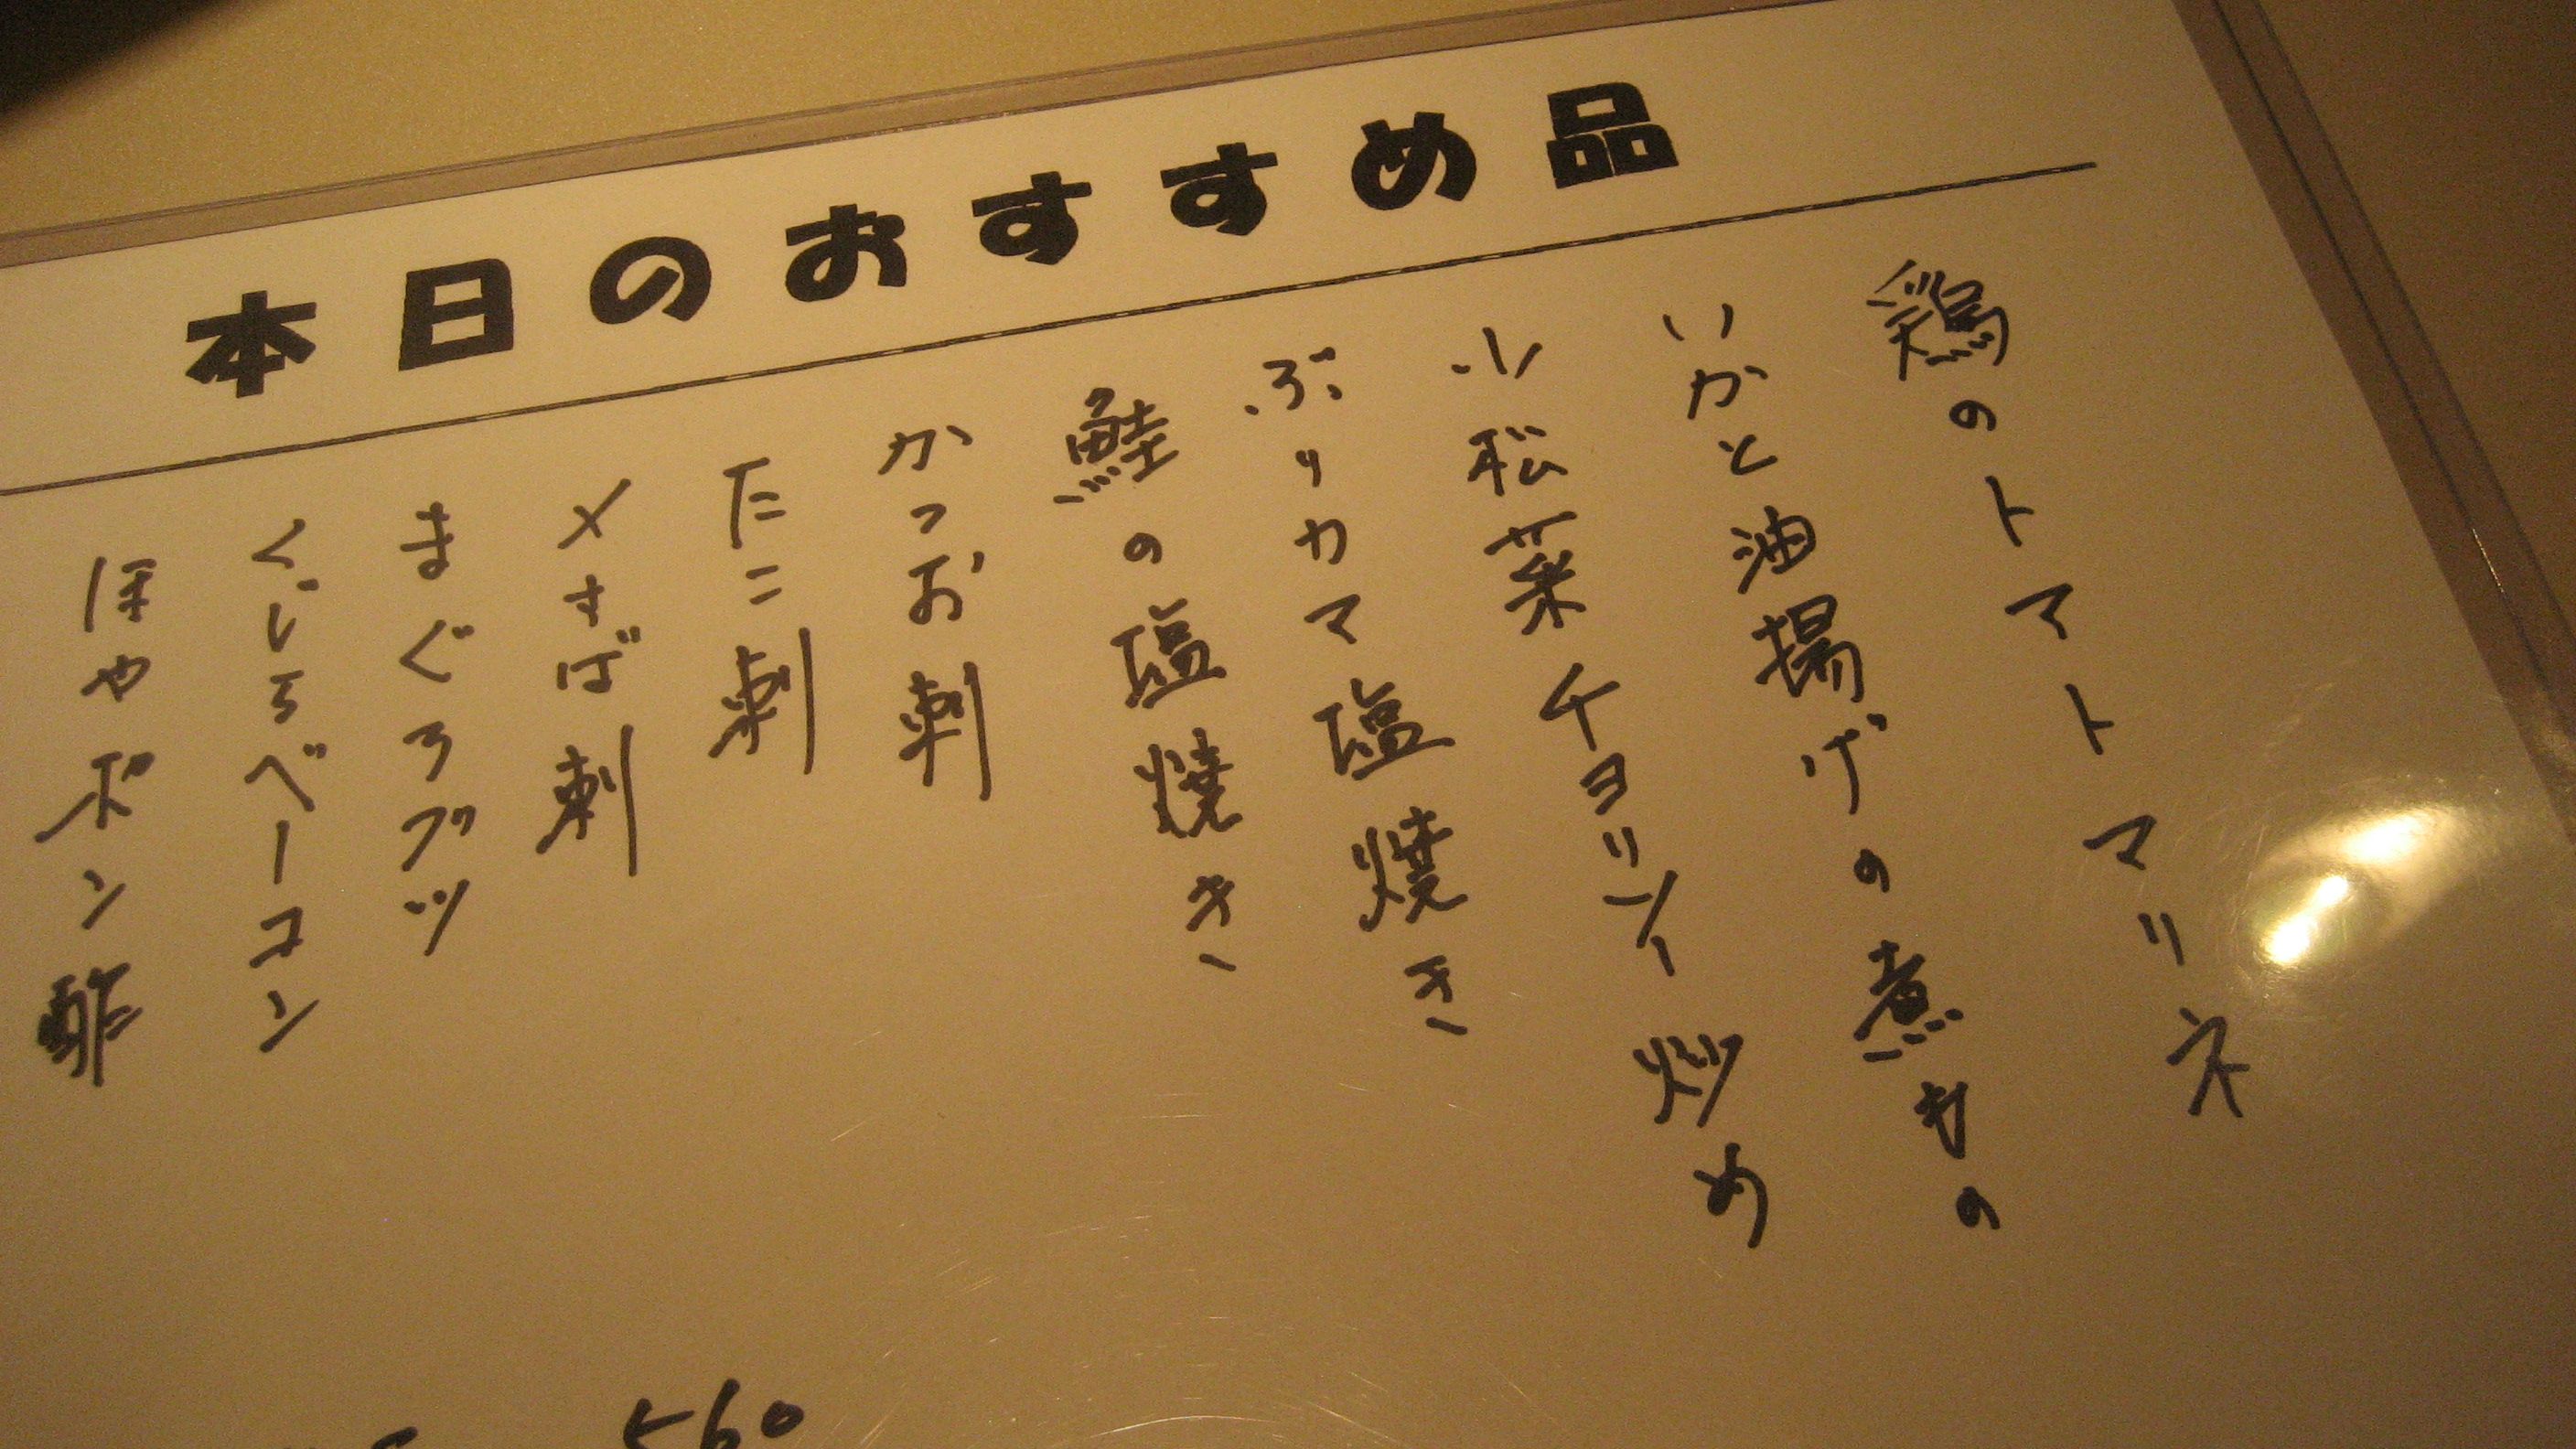 本日のおすすめ品
鶏のトマトマリネ
いかと油揚げの煮もの
小松菜チョリソー炒め
ぶりカマ塩焼き
鮭の塩焼き
かつお刺
たこ刺
〆さば刺
まぐろブツ
くじらベーコン
ほやポン酢
560